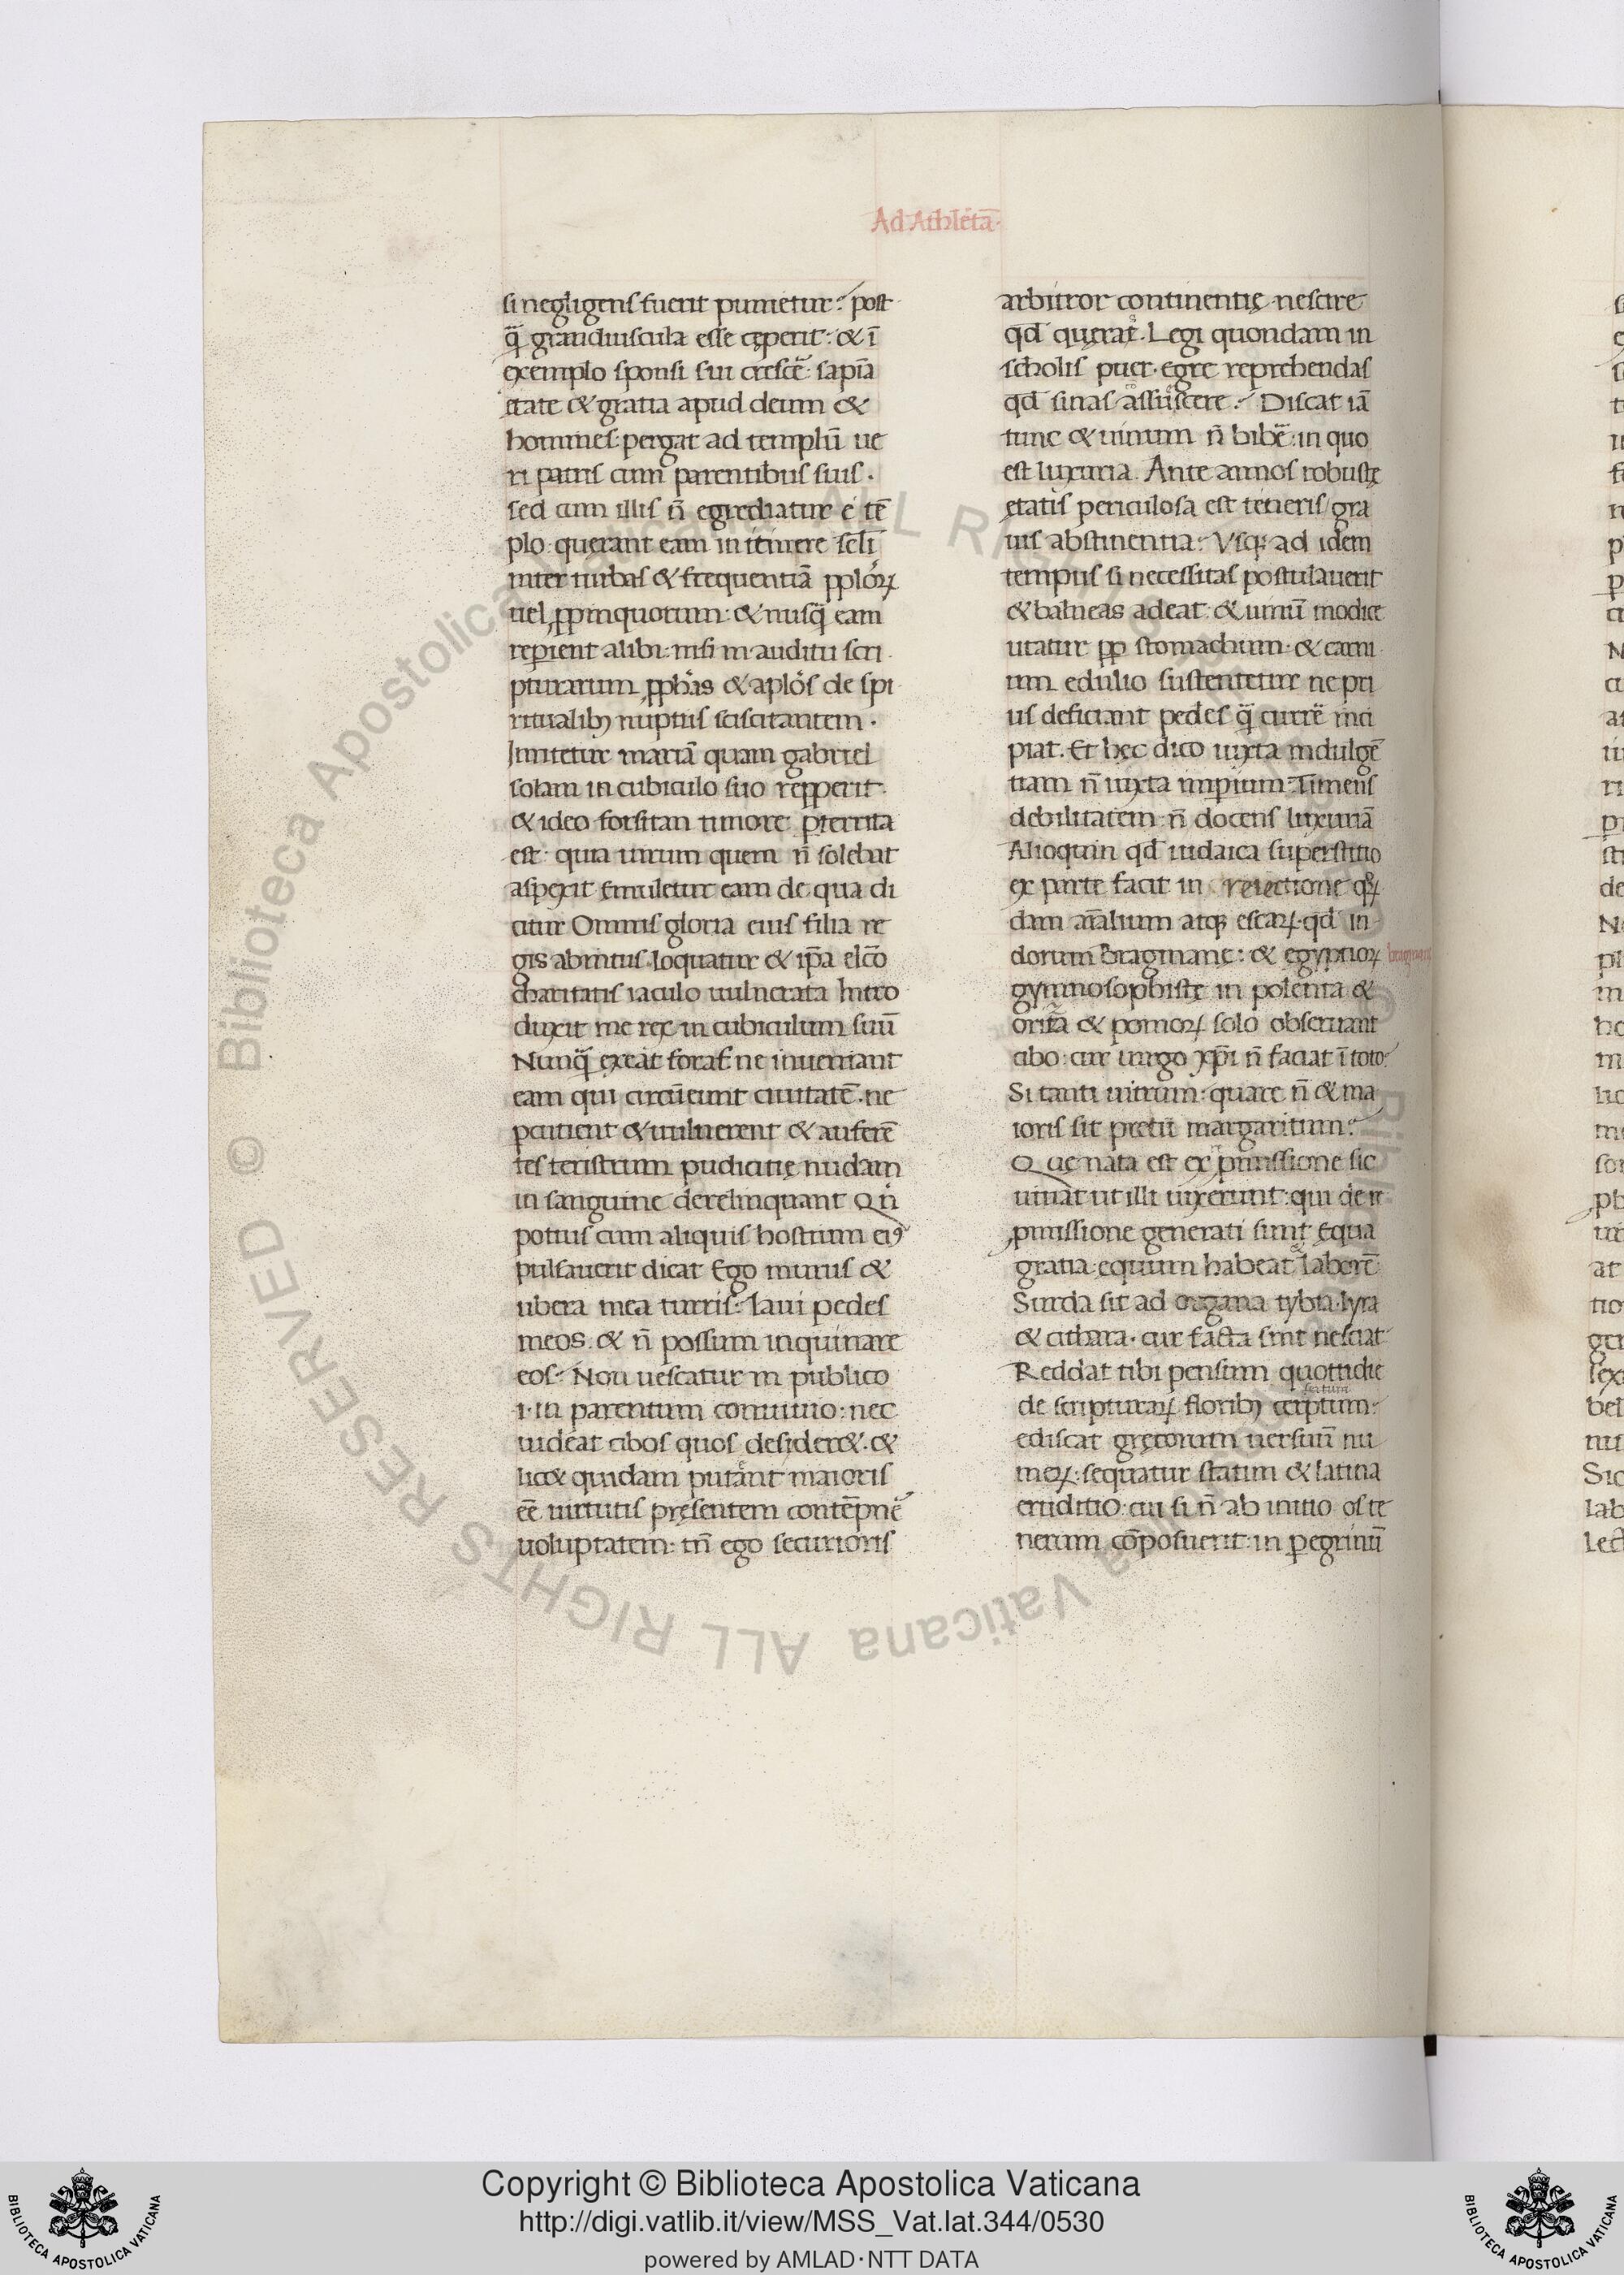 Ad Athletā·
si negligens fuerit punietur: post
q̄ grandiuscula esse cęperit: & ī
exemplo sponsi sui crescē: sapīa
ętate & gratia apud deum &
homines: pergat ad templū ue
ri patris cum parentibus suis·
sed cum illis n̄ egrediatur e tē
plo: querant eam in itinere scl̄i
inter turbas & frequentiā ꝓplōꝝ
uel ꝓpinquorum: & nusq̄ eam
reperient alibi: nisi in auditu scri
pturarum ꝓphās & aplōs de spi
ritualibꝫ nuptiis sciscitantem·
Imitetur mariā quam gabriel
solam in cubiculo suo repperit·
& ideo forsitan timore ꝑterrita
est: quia uirum quem n̄ solebat
aspexit Emuletur eam de qua di
citur Omnis gloria eius filia re
gis abintus·loquatur & ip̄a elc̄o
charitatis iaculo uulnerata Intro
duxit me rex in cubiculum suū
Nunq̄ exeat foras: ne inueniant
eam qui circūeunt ciuitatē·ne
ꝑcutient & uulnerent & auferē
tes teristrum pudicitię nudam
in sanguine derelinquant Qn̄
potius cum aliquis hostium eiꝰ
pulsauerit dicat Ego murus &
ubera mea turris: laui pedes
meos·& n̄ possum inquinare
eos: Non uescatur in publico
i·in parentum conuiuio: nec
uideat cibos quos desider&·&
lic& quidam putant maioris
eē uirtutis pręsentem contēpnē
uoluptatem: tn̄ ego securioris
arbitror continentię nescire
qd̄ quęrat·Legi quondam in
scholis puer·egre reprehendas
qd̄ sinas assuescere: Discat iā
tunc & uinum n̄ bibē: in quo
est luxuria. Ante annos robustę
ętatis periculosa est teneris/gra
uis abstinentia: Vsqꝫ ad idem
tempus si necessitas postulauerit
& balneas adeat: & uinū modice
utatur ꝓp stomachum·& carni
um edulio sustentetur ne pri
us deficiant pedes q̄ currē inci
piat·Et hęc dico iuxta indulgē
tiam n̄ iuxta impium: Timens
debilitatem: n̄ docens luxuriā
Alioquin qd̄ iudaica superstitio
ex parte facit in reiectione qꝝ
dam aīalium atqꝫ escaꝝ·qd̄ in
dorum Bragmanę: & egyptioꝝ
gymnosophistę in polenta &
orita & pomoꝝ solo obseruant
cibo: cur uirgo xp̄i n̄ faciat ī toto:
Si tanti uitrum: quare n̄ & ma
ioris sit pretii margaritum:
Quę nata est ex ꝓmissione sic
uiuat ut illi uixerunt: qui de re
ꝓmissione generati sunt Equa
gratia: equum habeat laborē:
Surda sit ad organa tybia·lyra
& cithara·cur facta sint nesciat:
Reddat tibi pensum quottidie
sertum
de scripturaꝝ floribꝫ certptum:
ediscat gręcorum uersuū nu
meꝝ: sequatur statim & latina
eruditio: cui si n̄ ab initio os te
nerum cōposuerit: in ꝑegrinū
Biblioteca Apostolica Vaticana ALL RIGHTS RESERVED ©
Copyright © Biblioteca Apostolica Vaticana
http://digi.vatlib.it/view/MSS_Vat.lat.344/0530
powered by AMLAD·NTT DATA
BIBLIOTECA APOSTOLICA VATICANA
BIBLIOTECA APOSTOLICA VATICANA